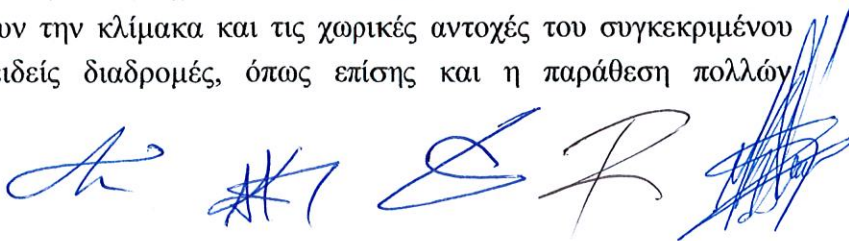 υν την κλίμακα και τις χωρικές αντοχές του συγκεκριμένου
ειδείς διαδρομές, όπως επίσης και η παράθεση πολλών